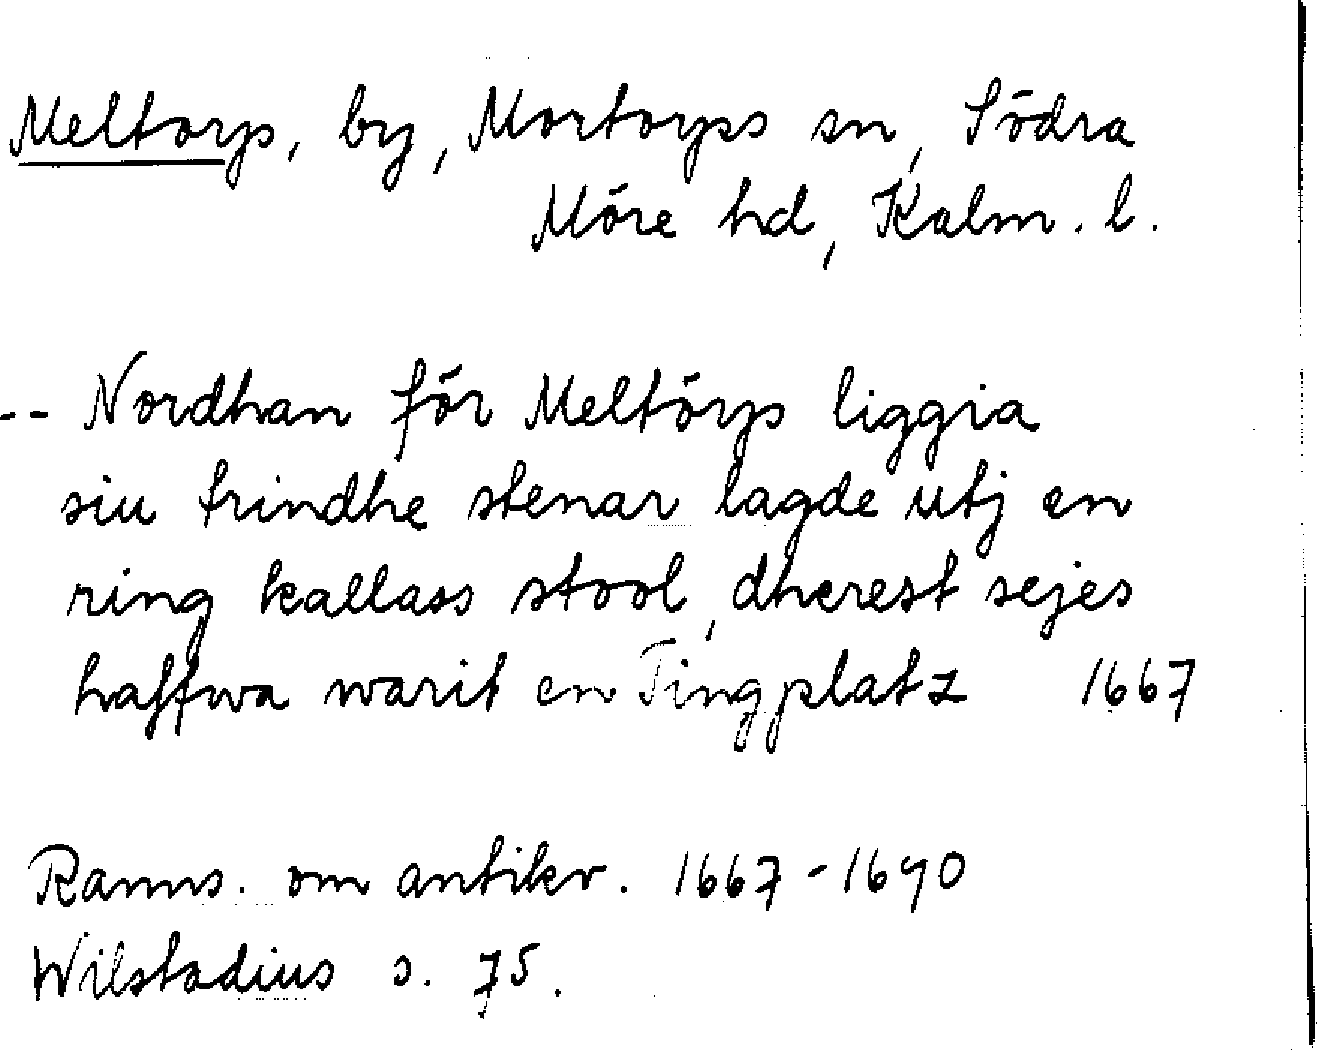 Meltorp, by, Mortorps sn, Södra
Möre hd, Kalm. l.
-- Nordhan för Meltörp liggia
siu trindhe stenar lagde utj en
ring kallass stool, dherest sejes
haffwa warit en Tingplatz 1667
Ranns. om antikv. 1667-1690
Wilstadius s. 75.